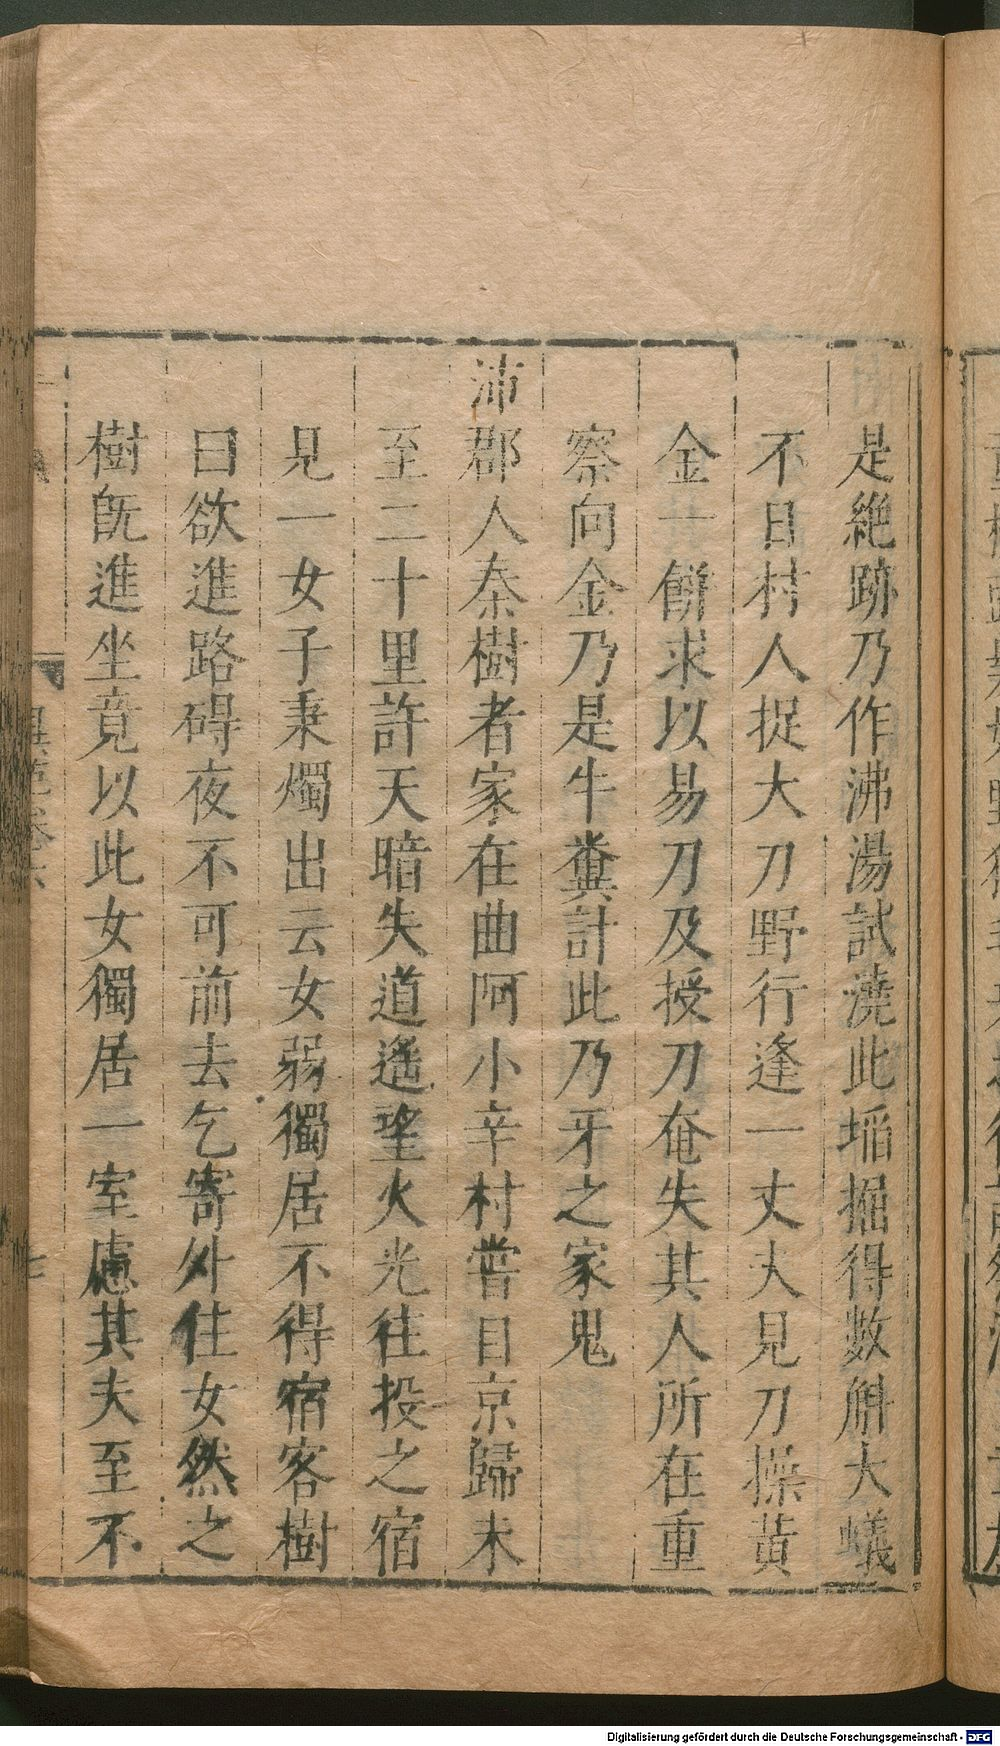 是絶跡乃作沸湯試澆此垢掘得數斛大蟻
不日村人捉大刀野行逢一丈夫見刀操黃
金一餅求以易刀及授刀奄失其人所在重
察向金乃是牛糞計此乃牙之家鬼
沛郡人秦樹者家在曲阿小辛村嘗自京歸未
至二十里許天暗失道遙望火光往投之宿
見一女子秉燭出云女弱獨居不得宿客樹
曰欲進路碍夜不可前去乞寄外住女然之
樹既進坐竟以此女獨居一室慮其夫至不
異苑卷六
七
Digitalisierung gefördert durch die Deutsche Forschungsgemeinschaft - DFG